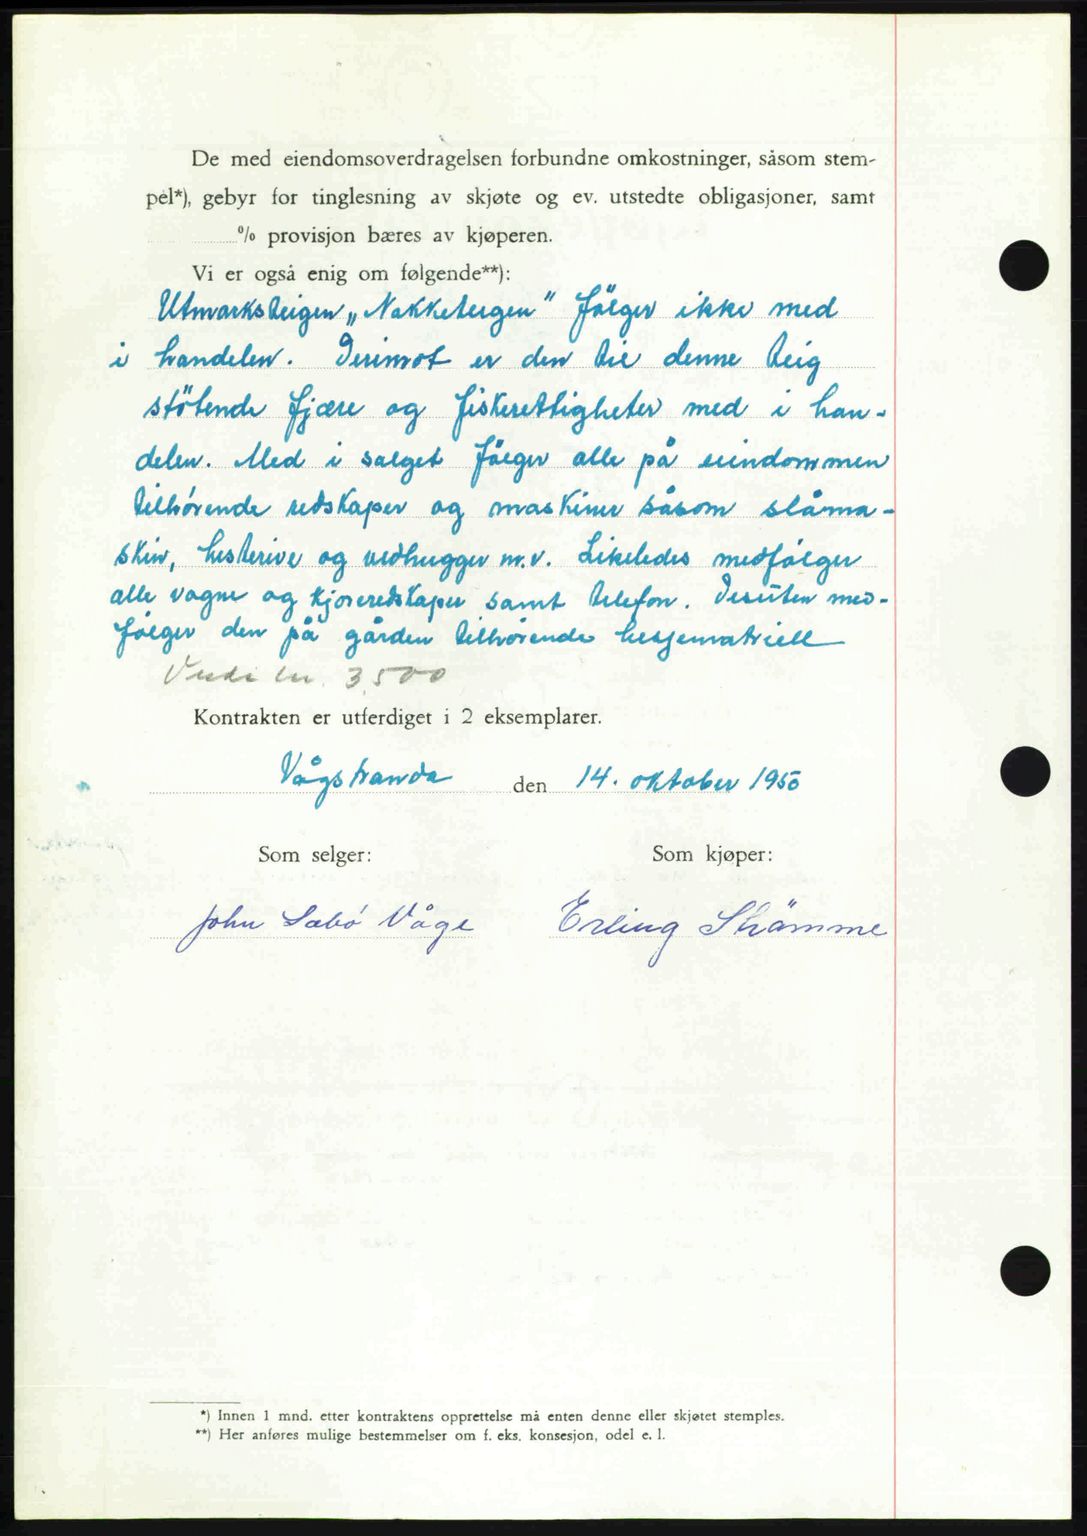 De med eiendomsoverdragelsen forbundne omkostninger, såsom stem-
pel*), gebyr for tinglesning av skjøte og ev. utstedte obligasjoner, samt
% provisjon bæres av kjøperen.
Vi er også enig om følgende**):
Utmarksteigen „Nakketeigen" följer ikke med
i handelen. Derimot er den til denne teig
stötende fjære og fiskerettigheter med i han-
delen. Med i salget fölger alle på eiendommen
tilhörende redskaper og maskiner såsom slåma-
skin, hesterive og vedhugger m.v. Likeledes medfölger
alle vogne og kjöreredskaper samt telefon. Desuten med-
fölger den på gården tilhörende hesjematriell
Verdi kr. 3,500
Kontrakten er utferdiget i 2 eksemplarer.
Vågstranda den 14. oktober 1950
Som selger: Som kjøper:
John Sæbö Våge Erling Skämme
*) Innen 1 mnd. etter kontraktens opprettelse må enten denne eller skjøtet stemples.
**) Her anføres mulige bestemmelser om f. eks. konsesjon, odel e. l.